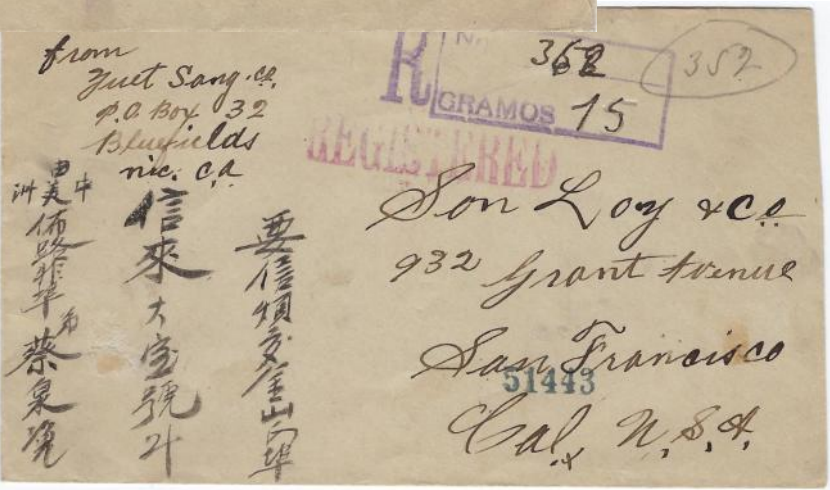 from
Yuet Sang. co.
P.O. Box 32
Bluefields
nic. C.A
R
N.
352
GRAMOS 15
352
REGISTERED
Son Loy & Co.
932 Grant Avenue
San Francisco
51443
Cal, U.S.A.
要信煩交金山大埠
信來大宝號升
由中美洲
佈路非埠 弟蔡泉